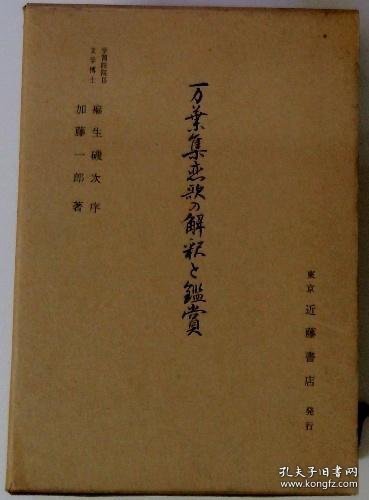 東京 近藤書店 発行
万葉集恋歌の解釈と鑑賞
学習院院長
文学博士
麻生磯次 序
加藤一郎 著
孔夫子旧书网
www.kongfz.com